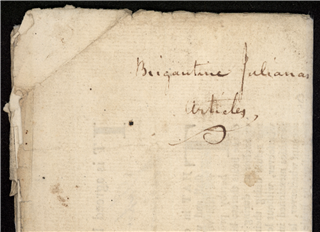 Brigantine Julianas
Articles,